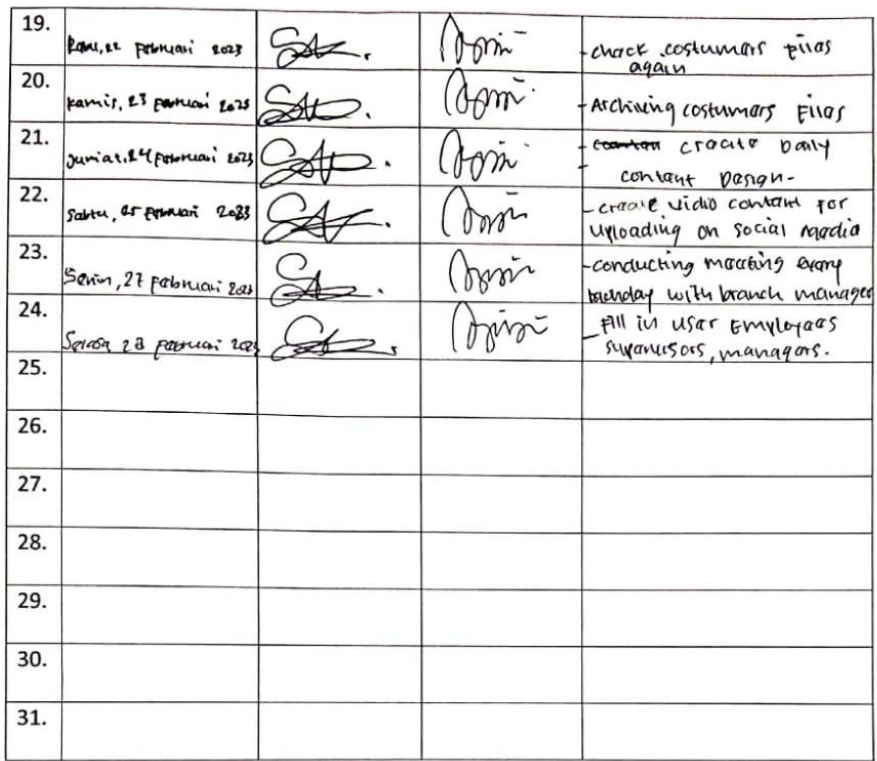 19.
Rabu, 22 Februari 2023
- chack costumars filas
again
20.
Kamis, 23 Februari 2023
- Archiving costumars Filas
21.
Jumat, 24 Februari 2023
- craata Daily
contant Dasign-
22.
Sabtu, 25 Februari 2023
- craata vidio contant for
uploading on social madia
23.
Senin, 27 Februari 2023
- conducting maating avary
with branch manager
24.
Selasa 28 Februari 2023
- Fill in usar Employaas
suparvisors, managars.
25.
26.
27.
28.
29.
30.
31.